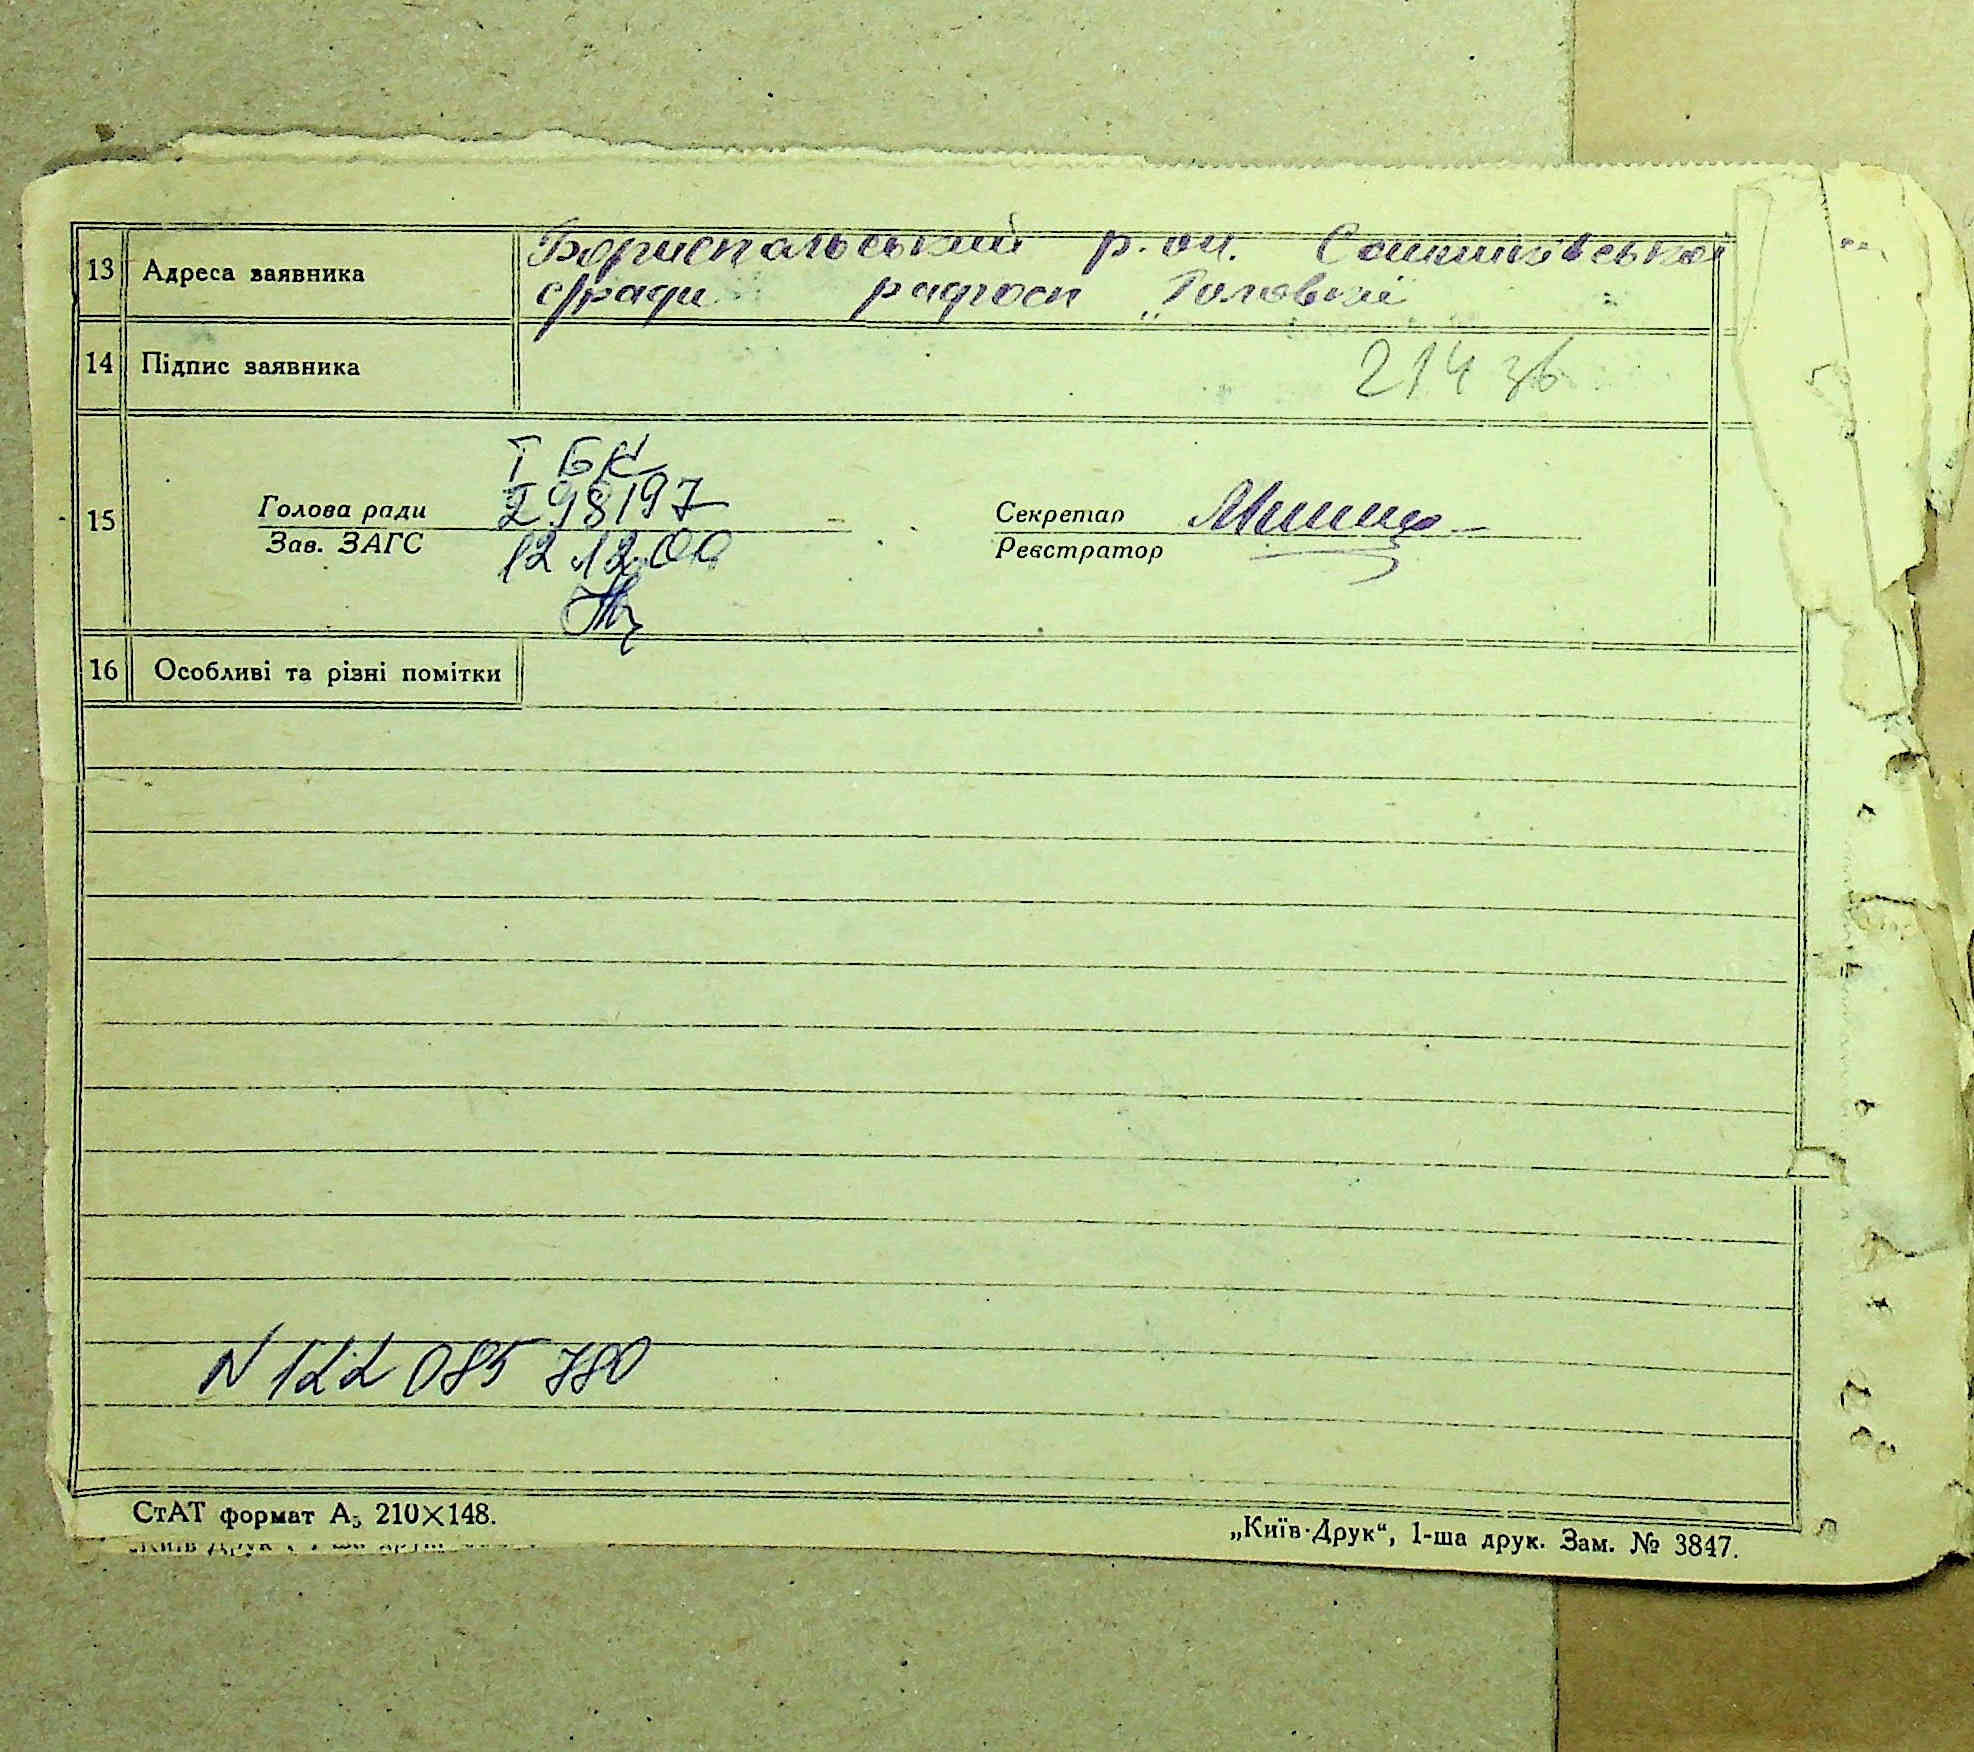 13 Адреса заявника Бориспальський р. он. Сошниківської
с/ради радгосп „Головкиї
14 Підпис заявника
214 зв
І БК
15 Голова ради 298197 Секретар
Зав. ЗАГС 12.12.00 Реєстратор
16 Особливі та різні помітки
N 122 085 780
СтАТ формат А₅ 210×148.
„Київ-Друк“, 1-ша друк. Зам. № 3847.